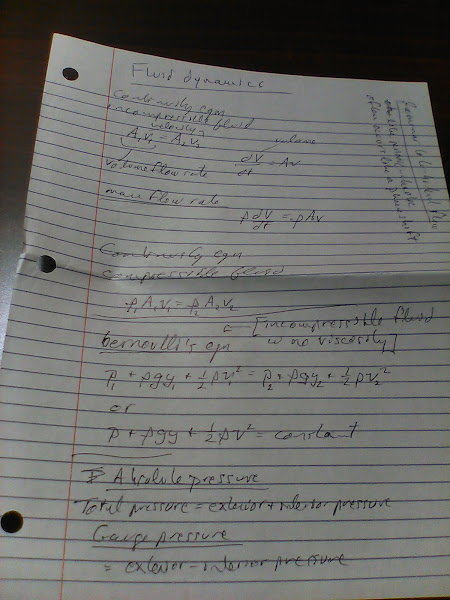 Fluid dynamics
Continuity eqn
incompressible fluid
velocity
A₁v₁ = A₂v₂
volume
volume flow rate dV/dt = Av
mass flow rate
ρ dV/dt = ρAv
Continuity eqn
compressible fluid
ρ₁A₁v₁ = ρ₂A₂v₂
← [incompressible fluid
w no viscosity]
bernoulli's eqn
P₁ + ρgy₁ + ½ρv₁² = P₂ + ρgy₂ + ½ρv₂²
or
P + ρgy + ½ρv² = constant
Absolute pressure
Total pressure = exterior + interior pressure
Gauge pressure
= exterior - interior pressure